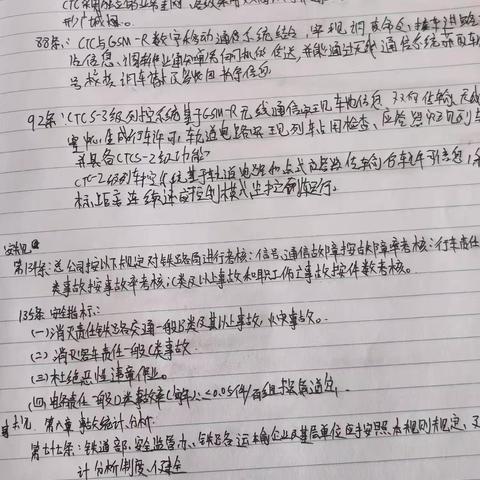 形广域网。
88条:CTC与GSM-R数字移动通信系统结合,实现调度命令、接车进路
信息、调车作业通知单 的传送,并能通过无线通信系统获取车
号校核 调车请求及签收回执等信息
92条:CTCS-3级列控系统基于GSM-R无线通信实现车地信息双向传输,无线
生成行车许可,轨道电路实现列车占用检查、应答器实现列车
并具备CTCS-2级功能
CTC-2级列车控系统基于轨道电路和点式应答器传输行车许可信息,采
目标距离连续速度控制模式监控列车运行。
第134条:总公司按以下规定对铁路局进行考核:信号、通信故障按故障率考核;行车责任
类事故按事故率考核;C类及以上事故和职工伤亡事故按件数考核。
135条 安全指标:
(一)消灭责任铁路交通一般B类及其以上事故,火灾事故。
(2)消灭客车责任一般C类事故
(三)杜绝恶性违章作业。
(四)电务责任一般D类事故率 <0.05件/百组 换算道岔,
第八章 事故统计、分析
第七十七条:铁道部、安全监管办、铁路运输企业及基层单位应当按照本规则规定,
计分析制度,健全